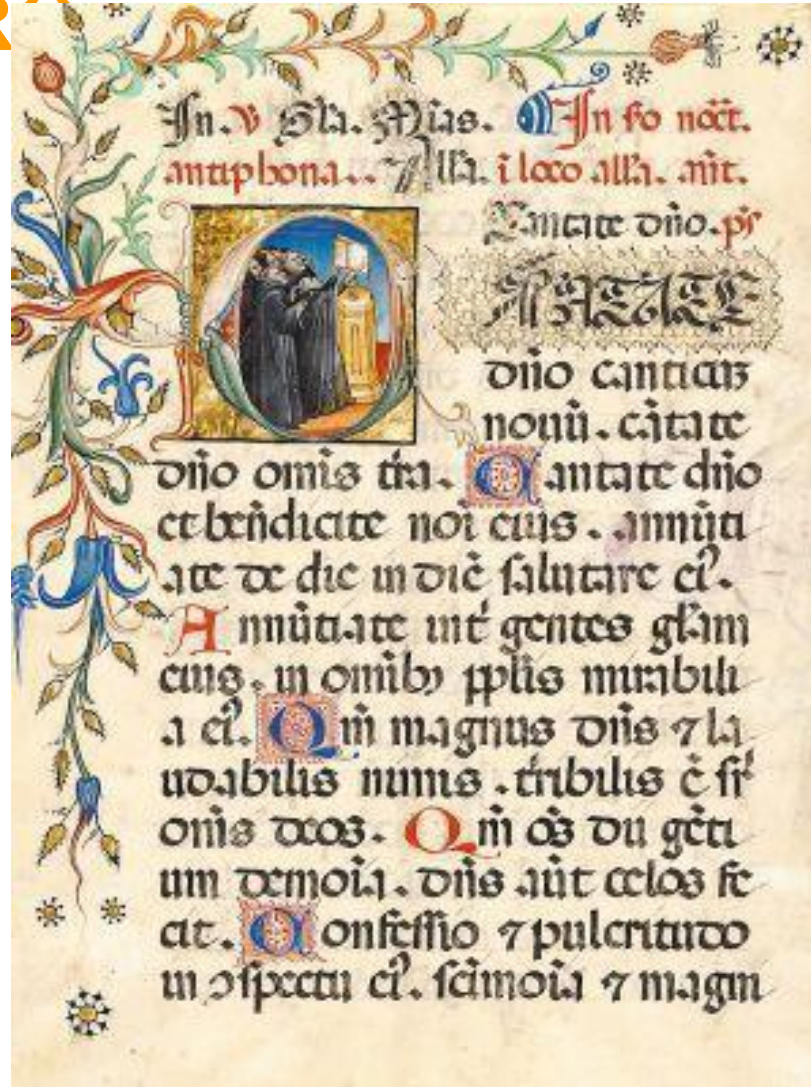 RA
In. V Sta. Mias. In fo noct.
antiphona.. Alla. i loco alla. ant.
Cantate dño. ps
ANTATE
dño canticuz
nouũ. cãtate
dño omis tra. Cantate dño
et beñdicite noi eius. annũti
ate de die in diẽ salutare ei9.
Annũtiate int gentes glam
eius. in omib9 pplis mirabili
a ei9. Qm̃ magnus dñs ⁊ la
udabilis nimis. tribilis ẽ sr̃
omis deos. Qm̃ oẽs dii gẽti
um demoĩa. dñs aũt celos fe
cit. Confessio ⁊ pulcritudo
in ꝯspectu ei9. scimoĩa ⁊ magni